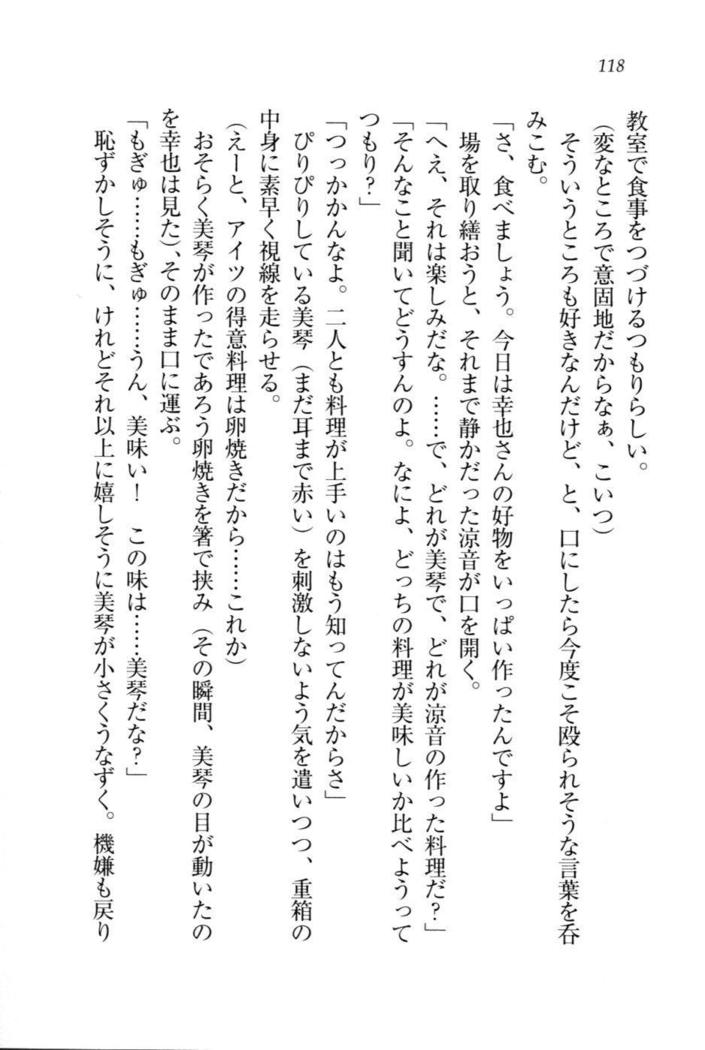 118
教室で食事をつづけるつもりらしい。
(変なところで意固地だからなぁ、こいつ)
そういうところも好きなんだけど、と、口にしたら今度こそ殴られそうな言葉を呑
みこむ。
「さ、食べましょう。今日は幸也さんの好物をいっぱい作ったんですよ」
場を取り繕おうと、それまで静かだった涼音が口を開く。
「へえ、それは楽しみだな。……で、どれが美琴で、どれが涼音の作った料理だ?」
「そんなこと聞いてどうすんのよ。なによ、どっちの料理が美味しいか比べようって
つもり?」
「つっかかんなよ。二人とも料理が上手いのはもう知ってんだからさ」
ぴりぴりしている美琴(まだ耳まで赤い)を刺激しないよう気を遣いつつ、重箱の
中身に素早く視線を走らせる。
(えーと、アイツの得意料理は卵焼きだから……これか)
おそらく美琴が作ったであろう卵焼きを箸で挟み(その瞬間、美琴の目が動いたの
を幸也は見た)、そのまま口に運ぶ。
「もぎゅ……もぎゅ……うん、美味い! この味は……美琴だな?」
恥ずかしそうに、けれどそれ以上に嬉しそうに美琴が小さくうなずく。機嫌も戻り